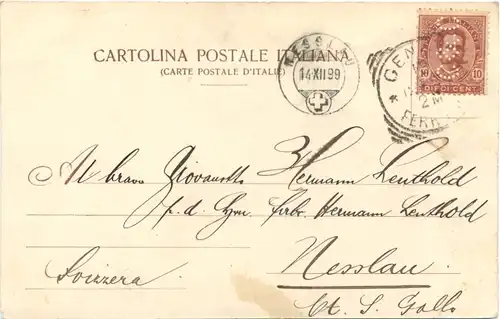 CARTOLINA POSTALE ITALIANA
(CARTE POSTALE D'ITALIE)
NESSLAU
14 XII 99
GEN
2 M
FERR
10 10
DIECI CENT.
Al bravo Giovanotto
Hermann Leuthold
p. d.
Hermann Leuthold
Nesslau
Ct. S. Gallo
Svizzera